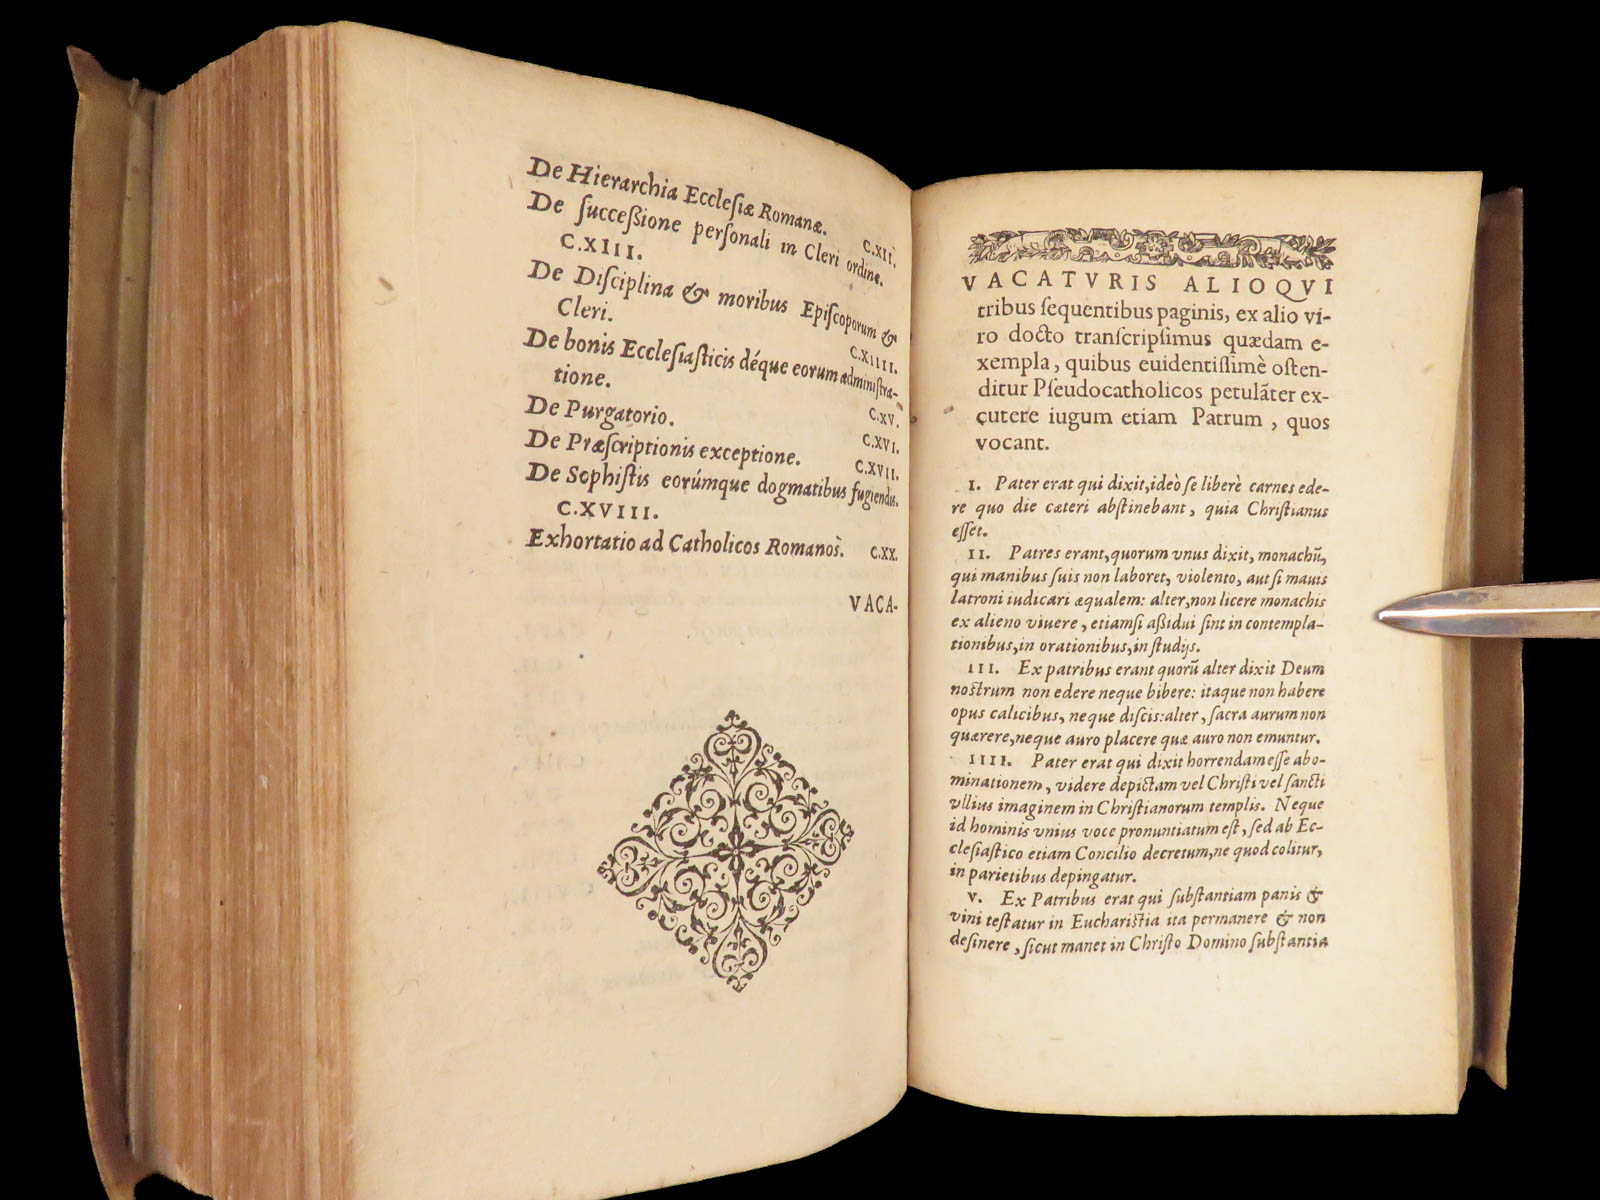 De Hierarchia Ecclesiæ Romanæ. C.XII.
De succeßione personali in Cleri ordine.
C.XIII.
De Disciplina & moribus Episcoporum &
Cleri. C.XIIII.
De bonis Ecclesiasticis déque eorum administra-
tione. C.XV.
De Purgatorio. C.XVI.
De Præscriptionis exceptione. C.XVII.
De Sophistis eorúmque dogmatibus fugiendis.
C.XVIII.
Exhortatio ad Catholicos Romanos. C.XX.
VACA-
VACATVRIS ALIOQVI
tribus sequentibus paginis, ex alio vi-
ro docto transcripsimus quædam e-
xempla, quibus euidentissimè osten-
ditur Pseudocatholicos petulãter ex-
cutere iugum etiam Patrum, quos
vocant.
I. Pater erat qui dixit, ideò se liberè carnes ede-
re quo die cæteri abstinebant, quia Christianus
esset.
II. Patres erant, quorum vnus dixit, monachũ,
qui manibus suis non laboret, violento, aut si mauis
latroni iudicari æqualem: alter, non licere monachis
ex alieno viuere, etiamsi aßidui sint in contempla-
tionibus, in orationibus, in studijs.
III. Ex patribus erant quorũ alter dixit Deum
nostrum non edere neque bibere: itaque non habere
opus calicibus, neque discis: alter, sacra aurum non
quærere, neque auro placere quæ auro non emuntur.
IIII. Pater erat qui dixit horrendam esse abo-
minationem, videre depictam vel Christi vel sancti
vllius imaginem in Christianorum templis. Neque
id hominis vnius voce pronuntiatum est, sed ab Ec-
clesiastico etiam Concilio decretum, ne quod colitur,
in parietibus depingatur.
V. Ex Patribus erat qui substantiam panis &
vini testatur in Eucharistia ita permanere & non
desinere, sicut manet in Christo Domino substantia